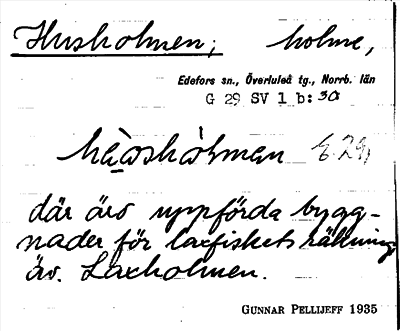 Husholmen; holme,
Edefors sn., Överluleå tg., Norrb. län
G 29 SV 1 b: 30
där äro uppförda bygg-
nader för laxfiskets räkning
äv. Laxholmen.
GUNNAR PELLIJEFF 1935